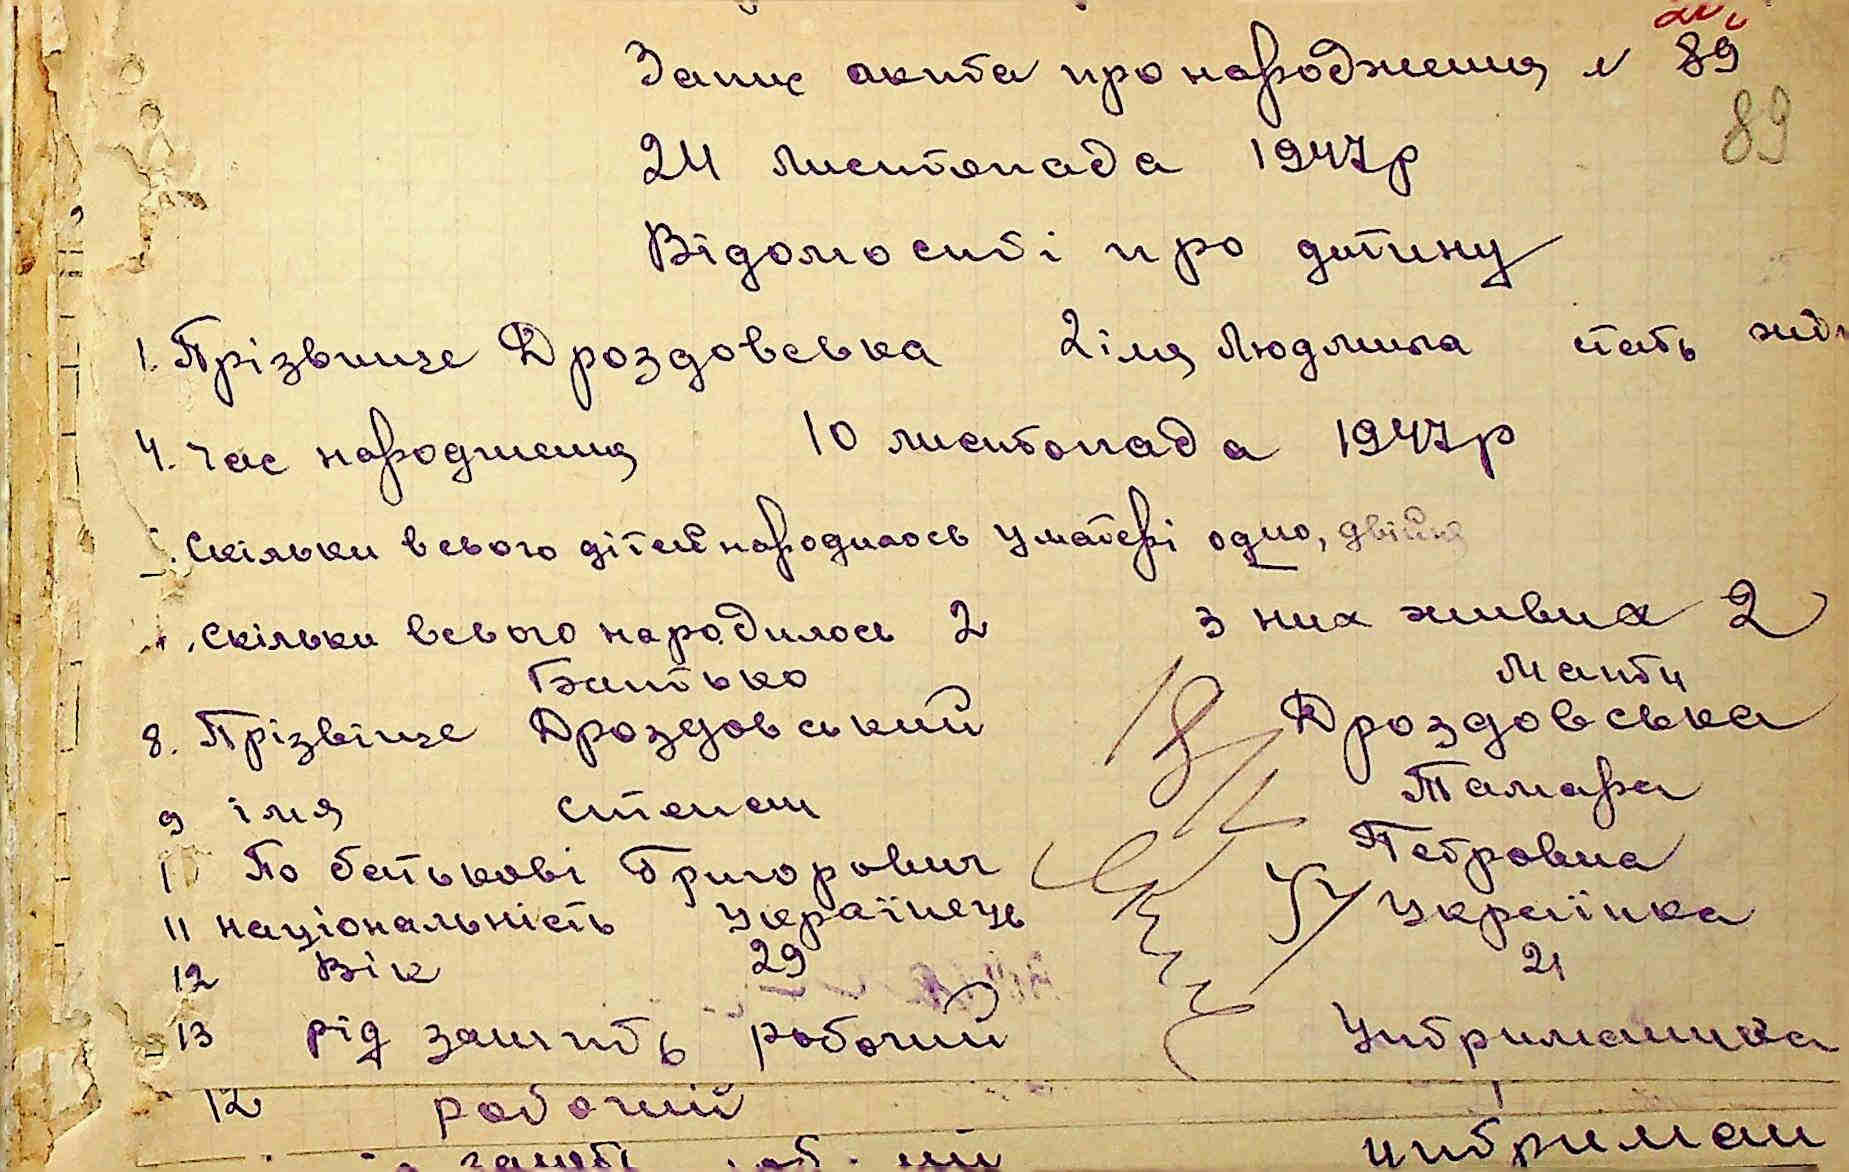 Запис акта про народження N 89
89
24 листопада 1947р
Відомості про дитину
1. Прізвище Дроздовська 2 імя Людмила стать
4. Час народження 10 листопада 1947р
Скільки всього дітей народилось у матері одно, двійня
Скільки всього народилось 2 з них живих 2
Батько Мати
8. Прізвіще Дроздовський Дроздовська
9 імя Степан Тамара
По батькові Григорович Петровна
11 національність Українець Українка
12 Вік 29 21
13 рід занять робочий Утриманика
12 робочий
утриман